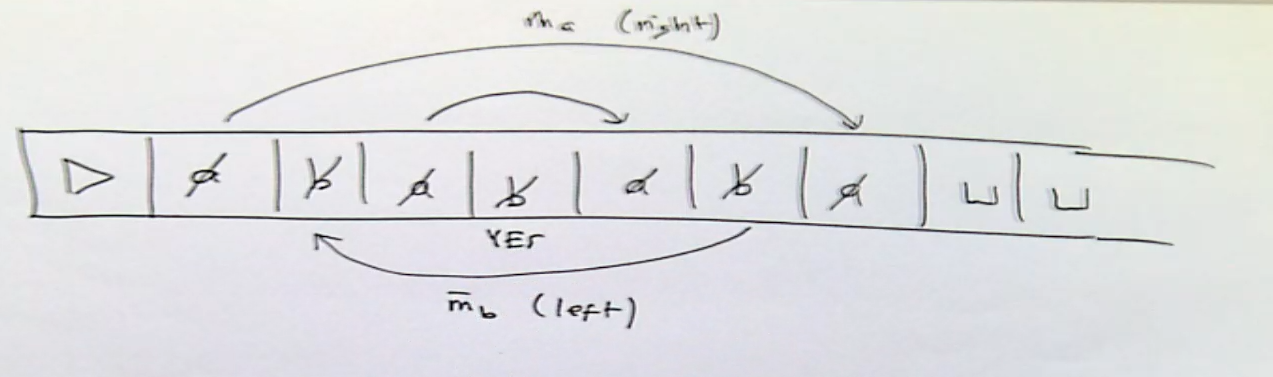 m_a (right)
▷ a b a b a b a ⊔ ⊔
YES
m̄_b (left)